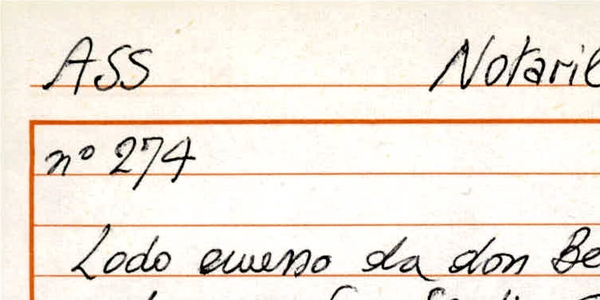 ASS Notaril
nº 274
Lodo emesso da don Be